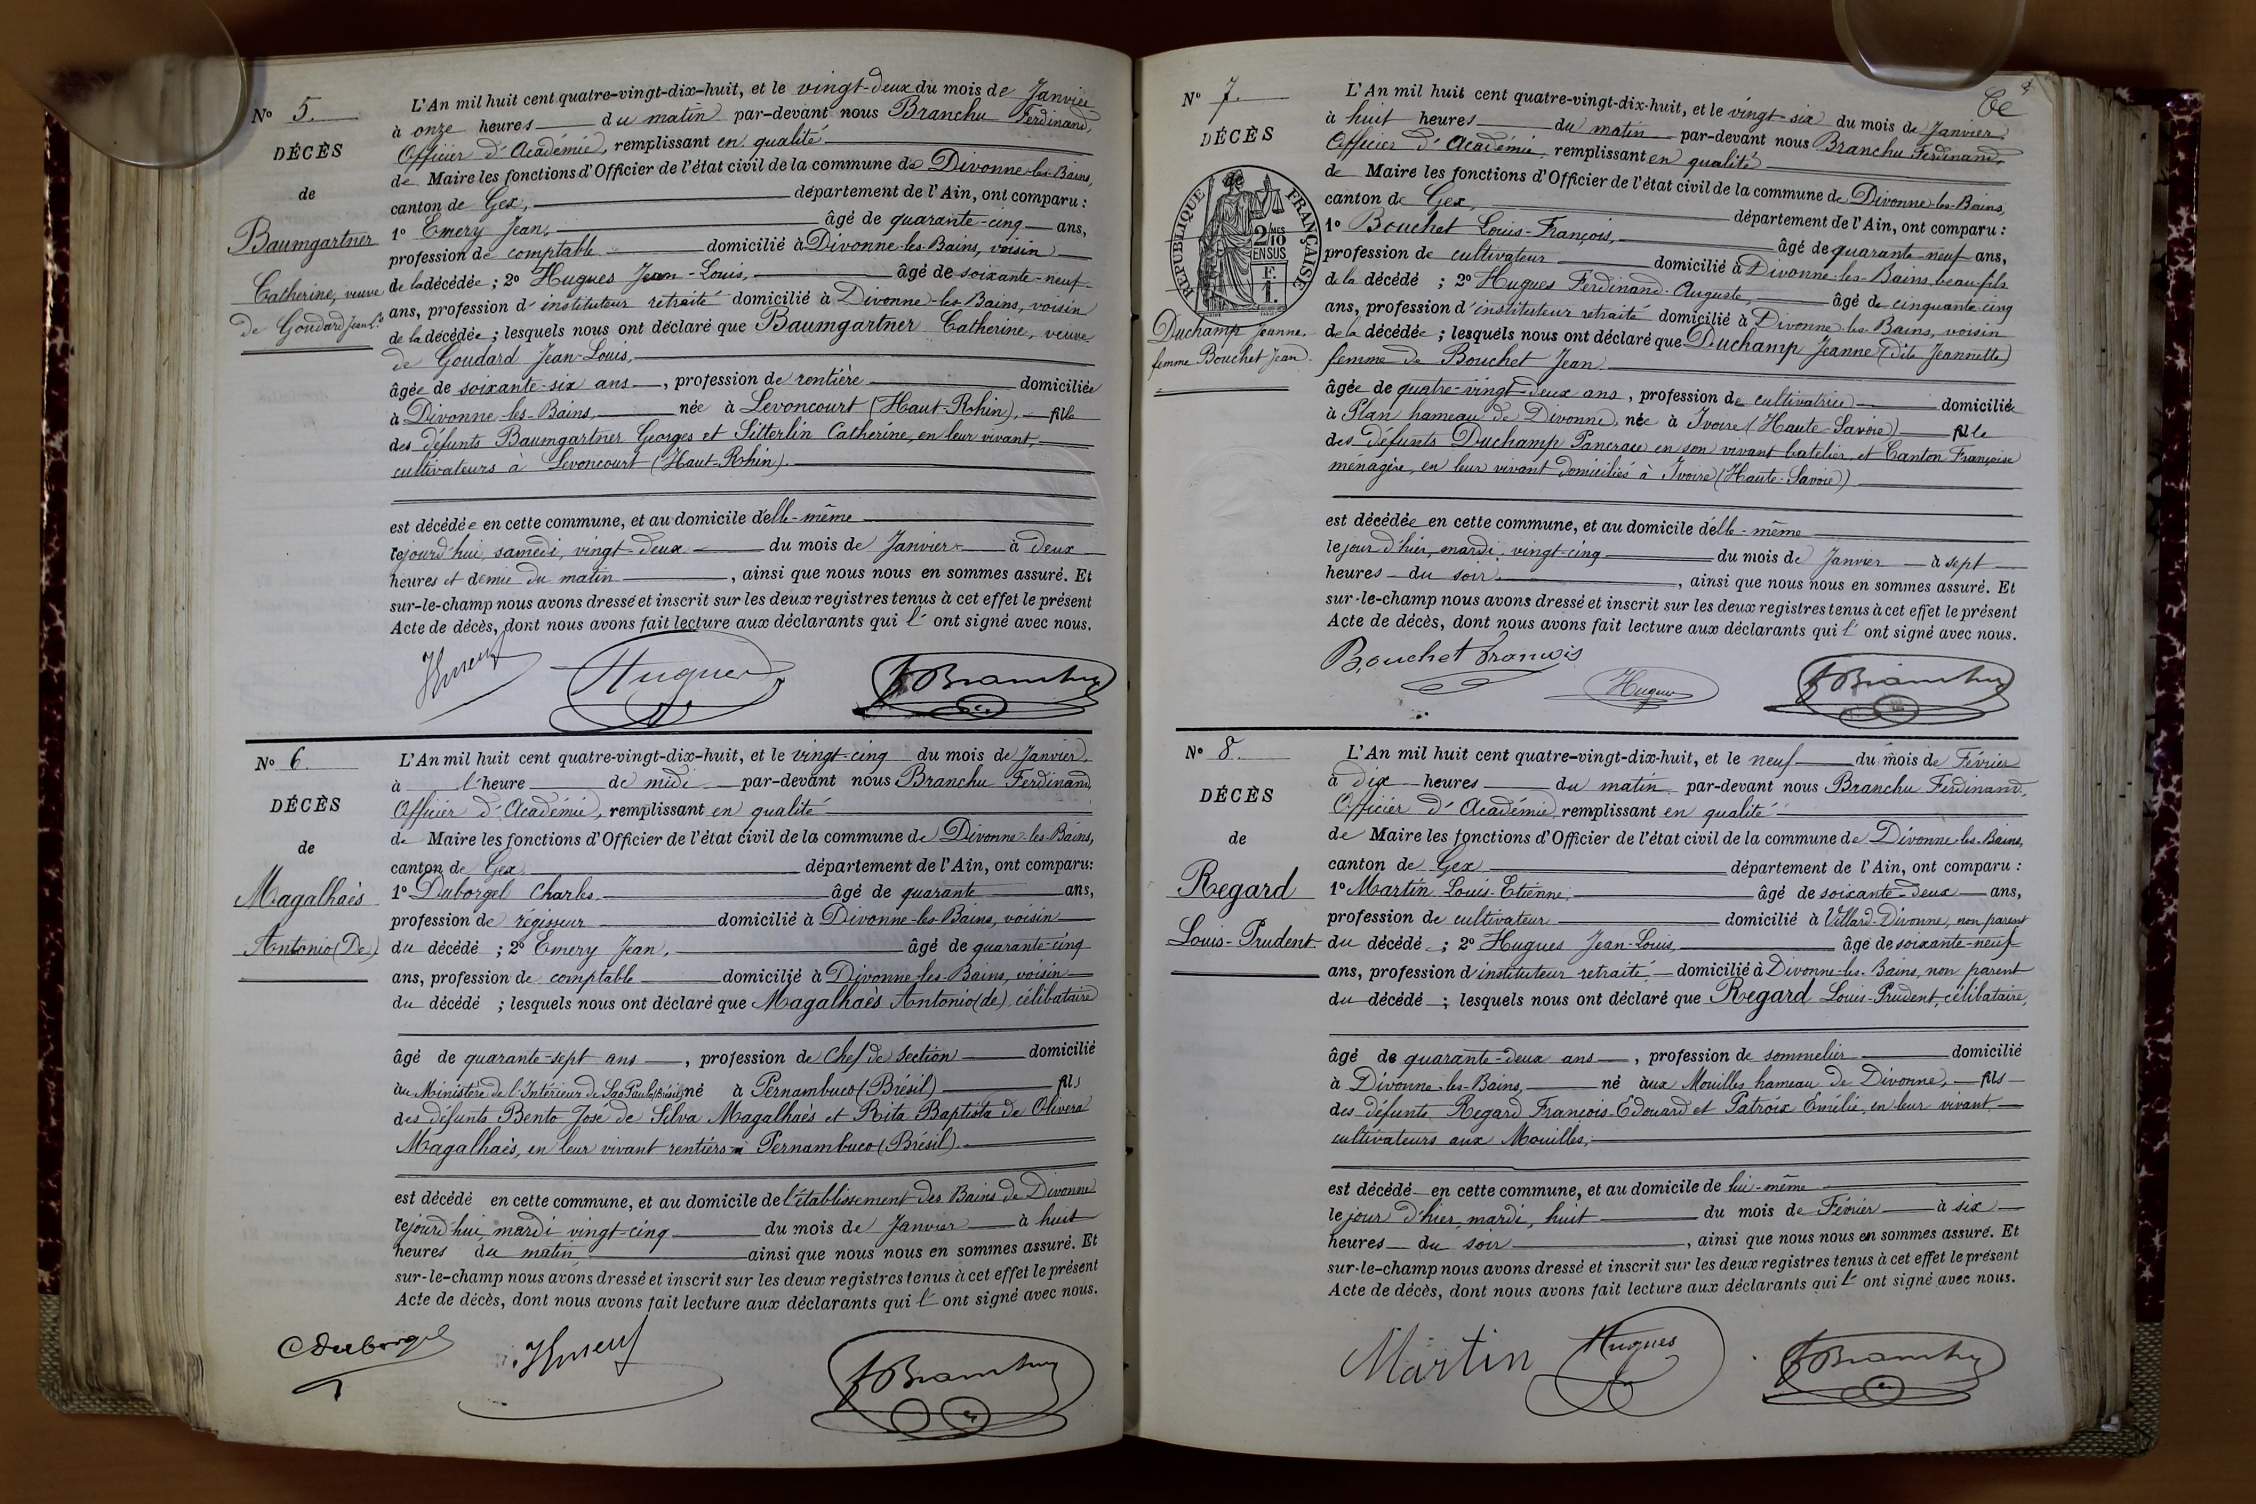 N° 5.
DÉCÈS
de
Baumgartner
Catherine, veuve
de Goudard Jean L.s
L'An mil huit cent quatre-vingt-dix-huit, et le vingt-deux du mois de Janvier
à onze heures du matin par-devant nous Branchu Ferdinand,
Officier d'Académie, remplissant en qualité
de Maire les fonctions d'Officier de l'état civil de la commune de Divonne-les-Bains,
canton de Gex, département de l'Ain, ont comparu :
1° Emery Jean, âgé de quarante-cinq ans,
profession de comptable domicilié à Divonne-les-Bains, voisin
de la décédée ; 2° Hugues Jean-Louis, âgé de soixante-neuf
ans, profession d'instituteur retraité domicilié à Divonne-les-Bains, voisin
de la décédée ; lesquels nous ont déclaré que Baumgartner Catherine, veuve
de Goudard Jean-Louis,
âgée de soixante-six ans, profession de rentière domiciliée
à Divonne-les-Bains, née à Levoncourt (Haut-Rhin), fille
des défunts Baumgartner Georges et Sitterlin Catherine, en leur vivant,
cultivateurs à Levoncourt (Haut-Rhin).
est décédée en cette commune, et au domicile d'elle-même
cejourd'hui samedi, vingt-deux du mois de Janvier à deux
heures et demie du matin, ainsi que nous nous en sommes assuré. Et
sur-le-champ nous avons dressé et inscrit sur les deux registres tenus à cet effet le présent
Acte de décès, dont nous avons fait lecture aux déclarants qui l' ont signé avec nous.
JEmery Hugues FBranchu
N° 6.
DÉCÈS
de
Magalhaès
Antonio (De)
L'An mil huit cent quatre-vingt-dix-huit, et le vingt-cinq du mois de Janvier
à l'heure de midi par-devant nous Branchu Ferdinand,
Officier d'Académie, remplissant en qualité
de Maire les fonctions d'Officier de l'état civil de la commune de Divonne-les-Bains,
canton de Gex département de l'Ain, ont comparu :
1° Duborgel Charles âgé de quarante ans,
profession de régisseur domicilié à Divonne-les-Bains, voisin
du décédé ; 2° Emery Jean, âgé de quarante-cinq
ans, profession de comptable domicilié à Divonne-les-Bains, voisin
du décédé ; lesquels nous ont déclaré que Magalhaès Antonio (de), célibataire
âgé de quarante-sept ans, profession de Chef de Section domicilié
au Ministère de l'Intérieur de Sao Paulo (Brésil) né à Pernambuco (Brésil) fils
des défunts Bento José de Silva Magalhaès et Rita Baptista de Olivera
Magalhaès, en leur vivant rentiers à Pernambuco (Brésil).
est décédé en cette commune, et au domicile de l'établissement des Bains de Divonne
cejourd'hui mardi vingt-cinq du mois de Janvier à huit
heures du matin ainsi que nous nous en sommes assuré. Et
sur-le-champ nous avons dressé et inscrit sur les deux registres tenus à cet effet le présent
Acte de décès, dont nous avons fait lecture aux déclarants qui l' ont signé avec nous.
CDuborgel JEmery FBranchu
N° 7.
DÉCÈS
de
RÉPUBLIQUE FRANÇAISE
2/10 MES
EN SUS
F.
1.
Duchamp Jeanne.
femme Bouchet Jean.
L'An mil huit cent quatre-vingt-dix-huit, et le vingt-six du mois de Janvier
à huit heures du matin par-devant nous Branchu Ferdinand,
Officier d'Académie, remplissant en qualité
de Maire les fonctions d'Officier de l'état civil de la commune de Divonne-les-Bains,
canton de Gex, département de l'Ain, ont comparu :
1° Bouchet Louis-François, âgé de quarante-neuf ans,
profession de cultivateur domicilié à Divonne-les-Bains, beau-fils
de la décédé ; 2° Hugues Ferdinand-Auguste, âgé de cinquante-cinq
ans, profession d'instituteur retraité domicilié à Divonne-les-Bains, voisin
de la décédée ; lesquels nous ont déclaré que Duchamp Jeanne (dite Jeannette)
femme de Bouchet Jean
âgée de quatre-vingt-deux ans, profession de cultivatrice domiciliée
à Plan hameau de Divonne, née à Ivoire (Haute-Savoie) fille
des défunts Duchamp Pancrace en son vivant batelier et Canton Françoise
ménagère, en leur vivant domiciliés à Ivoire (Haute-Savoie)
est décédée en cette commune, et au domicile d'elle-même
le jour d'hier, mardi, vingt-cinq du mois de Janvier à sept
heures du soir, ainsi que nous nous en sommes assuré. Et
sur-le-champ nous avons dressé et inscrit sur les deux registres tenus à cet effet le présent
Acte de décès, dont nous avons fait lecture aux déclarants qui l' ont signé avec nous.
Bouchet François Hugues FBranchu
N° 8.
DÉCÈS
de
Regard
Louis-Prudent
L'An mil huit cent quatre-vingt-dix-huit, et le neuf du mois de Février
à dix heures du matin par-devant nous Branchu Ferdinand,
Officier d'Académie, remplissant en qualité
de Maire les fonctions d'Officier de l'état civil de la commune de Divonne-les-Bains,
canton de Gex département de l'Ain, ont comparu :
1° Martin Louis-Etienne, âgé de soixante-deux ans,
profession de cultivateur domicilié à Villard-Divonne, non parent
du décédé ; 2° Hugues Jean-Louis, âgé de soixante-neuf
ans, profession d'instituteur retraité domicilié à Divonne-les-Bains, non parent
du décédé ; lesquels nous ont déclaré que Regard Louis-Prudent, célibataire,
âgé de quarante-deux ans, profession de sommelier domicilié
à Divonne-les-Bains, né aux Mouilles hameau de Divonne, fils
des défunts Regard François-Edouard et Patroix Emélie, en leur vivant
cultivateurs aux Mouilles,
est décédé en cette commune, et au domicile de lui-même
le jour d'hier, mardi, huit du mois de Février à six
heures du soir, ainsi que nous nous en sommes assuré. Et
sur-le-champ nous avons dressé et inscrit sur les deux registres tenus à cet effet le présent
Acte de décès, dont nous avons fait lecture aux déclarants qui l' ont signé avec nous.
Martin Hugues FBranchu